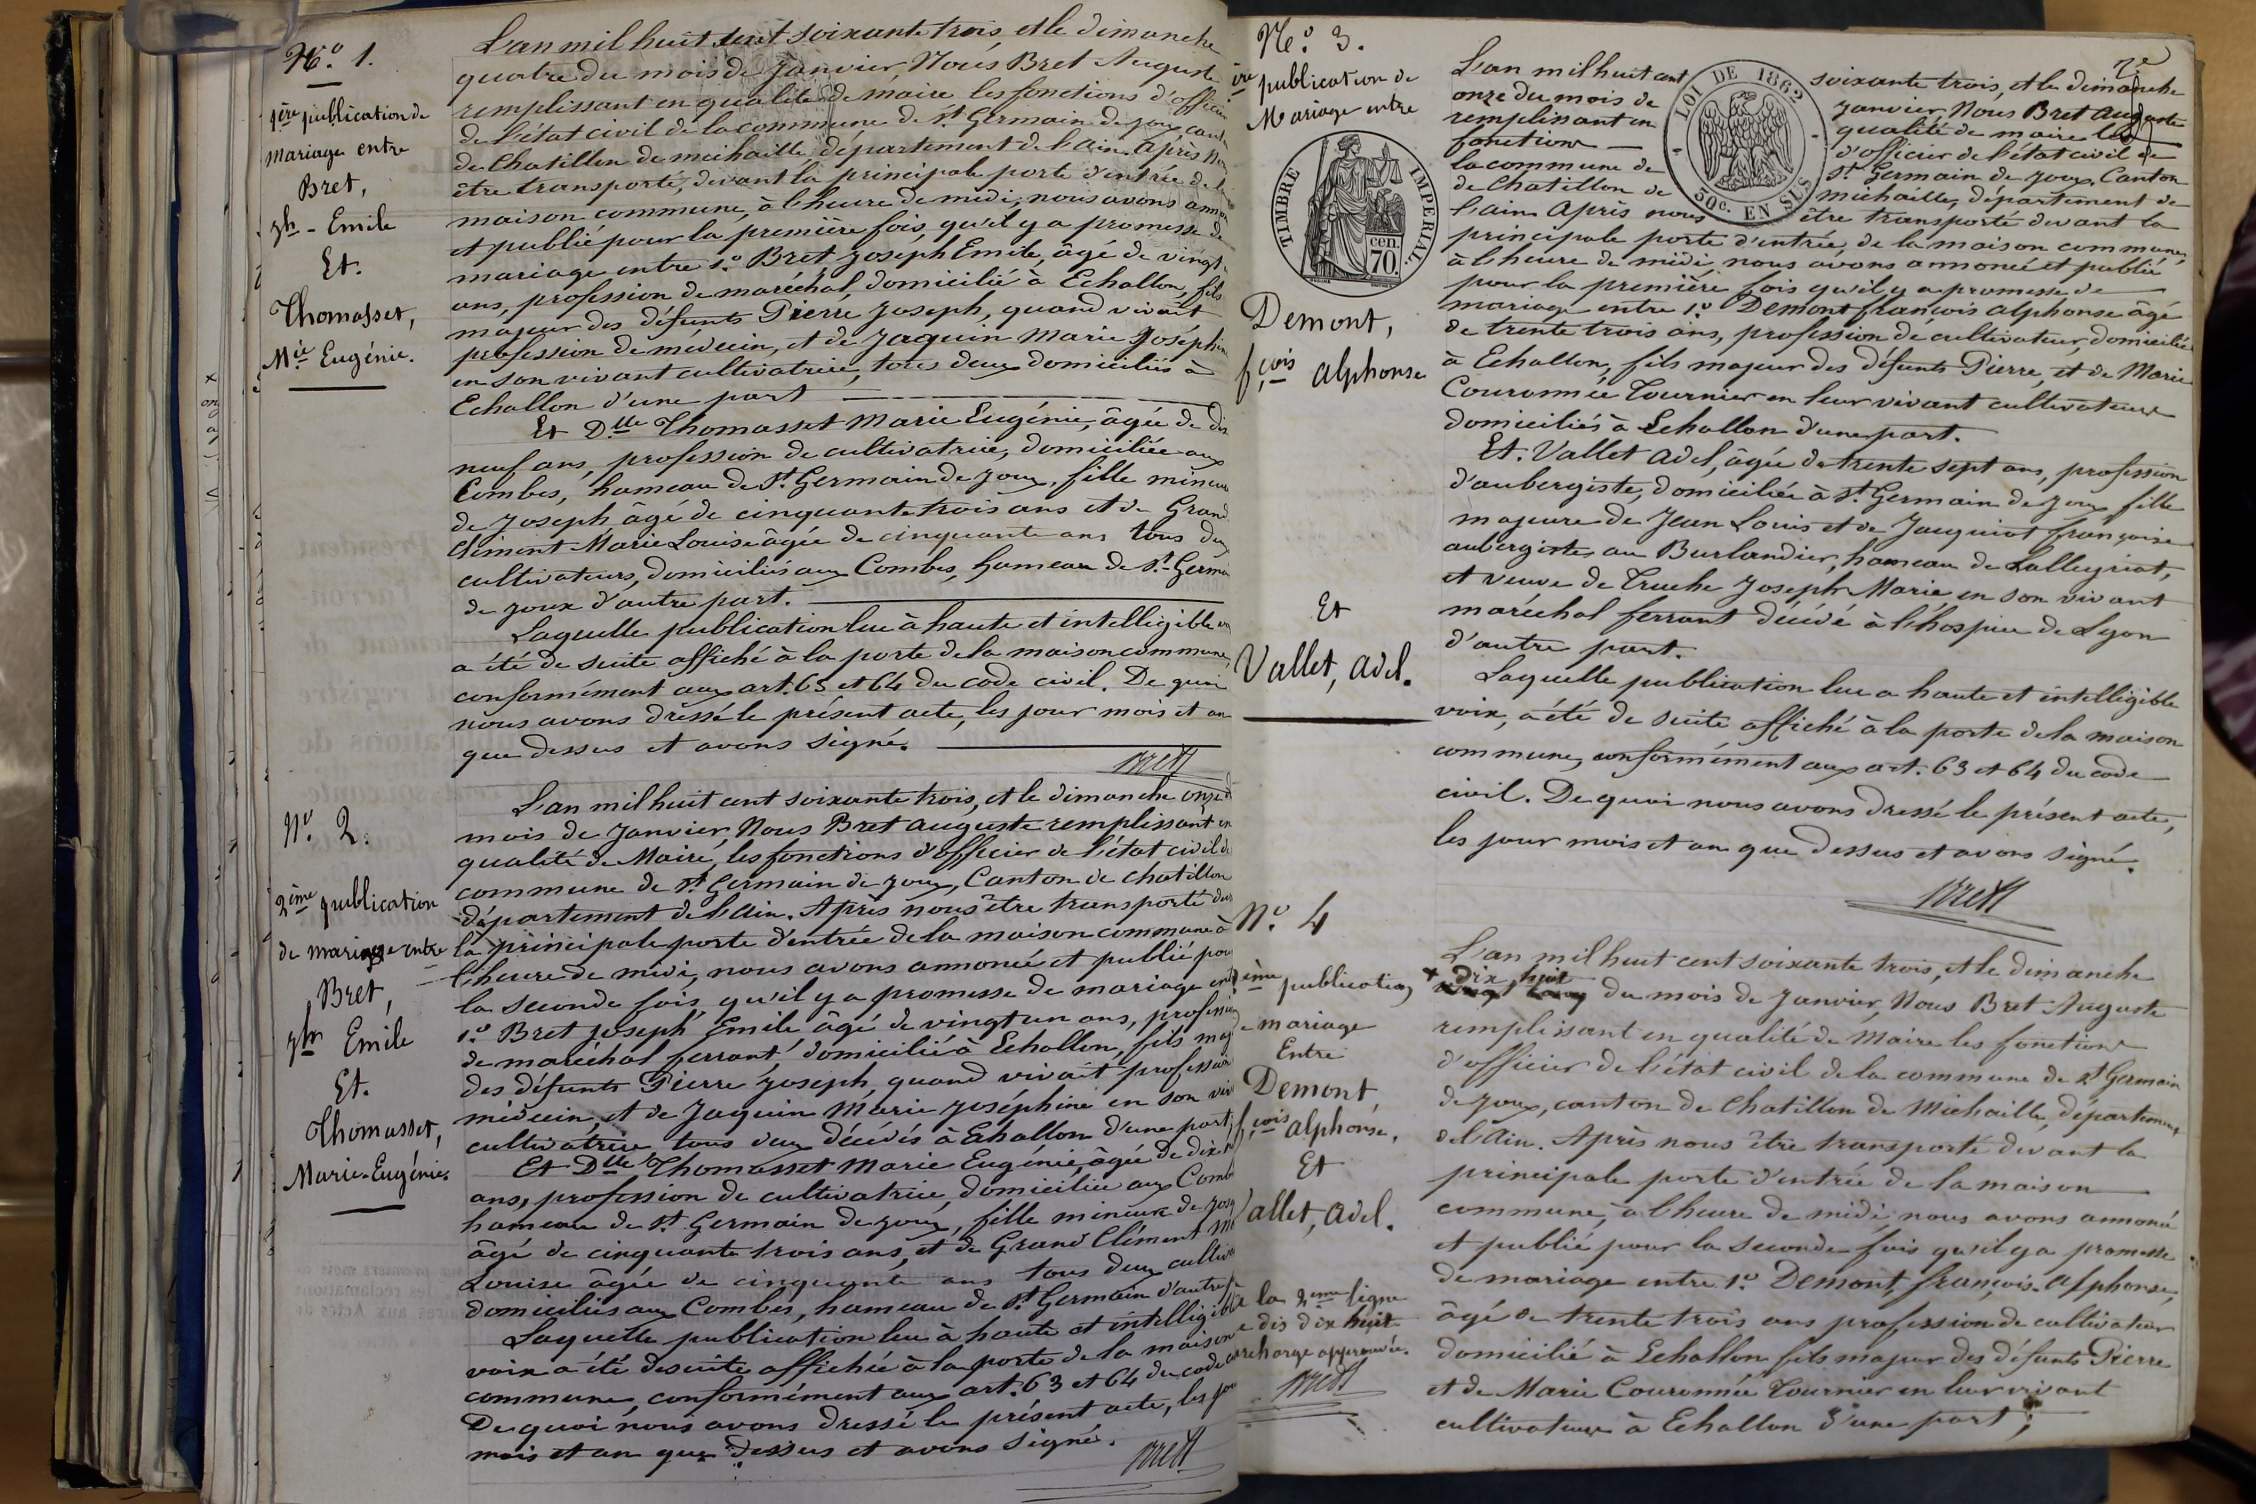 N.° 1.
1ère publication de
mariage entre
Bret,
Jh - Emile
Et.
Thomasset,
Mie Eugénie.
L'an mil huit cent soixante trois, et le dimanche
quatre du mois de Janvier, Nous Bret Auguste
remplissant en qualité de maire les fonctions d'officier
de l'état civil de la commune de St. Germain de joux, cant
de Chatillon de michaille, département de l'ain. Après
être transporté, devant la principale porte d'entrée de la
maison commune, à l'heure de midi, nous avons annon
et publié pour la première fois, qu'il y a promesse de
mariage entre 1.° Bret Joseph Emile, âgé de vingt
ans, profession de maréchal, domicilié à Echallon, fils
majeur des défunts Pierre Joseph, quand vivait
profession de médecin, et de Jaquin Marie Joséphine
en son vivant cultivatrice, tous deux domiciliés à
Echallon d'une part
Et Dlle Thomasset Marie Eugénie, âgée de dix
neuf ans, profession de cultivatrice, domiciliée aux
Combes, hameau de St. Germain de joux, fille mineure
de Joseph âgé de cinquante trois ans et de Grand
Clément Marie Louise âgée de cinquante ans tous deux
cultivateurs, domiciliés aux Combes, hameau de St. Germa
de joux d'autre part.
Laquelle publication lue à haute et intelligible
a été de suite affiché à la porte de la maison commune,
conformément aux art. 63 et 64 du code civil. De quoi
nous avons dressé le présent acte, les jour mois et an
que dessus et avons signé.
Bret
N.° 2.
2ème publication
de mariage entre
Bret,
Jh Emile
Et.
Thomasset,
Marie-Eugénie.
L'an mil huit cent soixante trois, et le dimanche onze d
mois de Janvier, Nous Bret Auguste remplissant en
qualité de Maire, les fonctions d'officier de l'état civil de
commune de St. Germain de joux, Canton de Chatillon
département de l'Ain. Après nous être transporté dev
la principale porte d'entrée de la maison commune à
l'heure de midi, nous avons annoncé et publié pour
la seconde fois, qu'il y a promesse de mariage entre
1.° Bret Joseph Emile âgé de vingt un ans, profession
de maréchal ferrant, domicilié à Echallon, fils maj
des défunts Pierre Joseph, quand vivait profession
médecin, et de Jaquin Marie Joséphine en son viv
cultivatrice tous deux décédés à Echallon d'une part,
Et Dlle Thomasset Marie Eugénie, âgée de dix n
ans, profession de cultivatrice, domiciliée aux Comb
hameau de St. Germain de joux, fille mineure de Jos
âgé de cinquante trois ans, et de Grand Clément M
Louise âgée de cinquante ans tous deux cultiv
domiciliés aux Combes, hameau de St. Germain d'autre p
Laquelle publication lue à haute et intelligible
voix a été de suite affichée à la porte de la maison
commune, conformément aux art. 63 et 64 du code
De quoi nous avons dressé le présent acte, les jou
mois et an que dessus et avons signé.
Bret
2e
N.° 3.
ère publication de
Mariage entre
TIMBRE IMPERIAL.
cen.
70.
Demont,
fçois alphonse
Et
Vallet, adel.
LOI DE 1862
50c. EN SUS
L'an mil huit cent soixante trois, et le dimanche
onze du mois de Janvier, Nous Bret Auguste
remplissant en qualité de maire les
fonctions d'officier de l'état civil de
la commune de St. Germain de joux, Canton
de Chatillon de michaille, département de
l'ain. Après nous être transporté devant la
principale porte d'entrée, de la maison commune,
à l'heure de midi, nous avons annoncé et publié
pour la première fois qu'il y a promesse de
mariage entre 1.° Demont françois alphonse âgé
de trente trois ans, profession de cultivateur, domicilié
à Echallon, fils majeur des défunts Pierre, et de Marie
Couronnée Tournier en leur vivant cultivateurs
domiciliés à Echallon d'une part.
Et. Vallet adel, âgée de trente sept ans, profession
d'aubergiste, domiciliée à St. Germain de joux fille
majeure de Jean Louis et de Jacquiot françoise
aubergistes au Burlandier, hameau de Lalleyriat,
et veuve de Truche Joseph Marie en son vivant
maréchal ferrant décédé à l'hospice de Lyon
d'autre part.
Laquelle publication lue a haute et intelligible
voix, a été de suite affiché à la porte de la maison
commune, conformément aux art. 63 et 64 du code
civil. De quoi nous avons dressé le présent acte,
les jour mois et an que dessus et avons signé.
Bret
N.° 4
ième publication
mariage
Entre
Demont,
fçois alphonse,
Et
Vallet, adel.
la 2ème ligne
dis dix huit
surcharge approuvée.
Bret
L'an mil huit cent soixante trois, et le dimanche
+ dix huit du mois de Janvier, Nous Bret Auguste
remplissant en qualité de Maire les fonctions
d'officier de l'état civil de la commune de St Germain
de joux, canton de Chatillon de Michaille, département
de l'Ain. Après nous être transporté devant la
principale porte d'entrée de la maison
commune, à l'heure de midi, nous avons annoncé
et publié pour la seconde fois qu'il y a promesse
de mariage entre 1.° Demont, françois-alphonse,
âgé de trente trois ans profession de cultivateur
domicilié à Echallon fils majeur des défunts Pierre
et de Marie Couronnée Tournier en leur vivant
cultivateurs à Echallon d'une part;